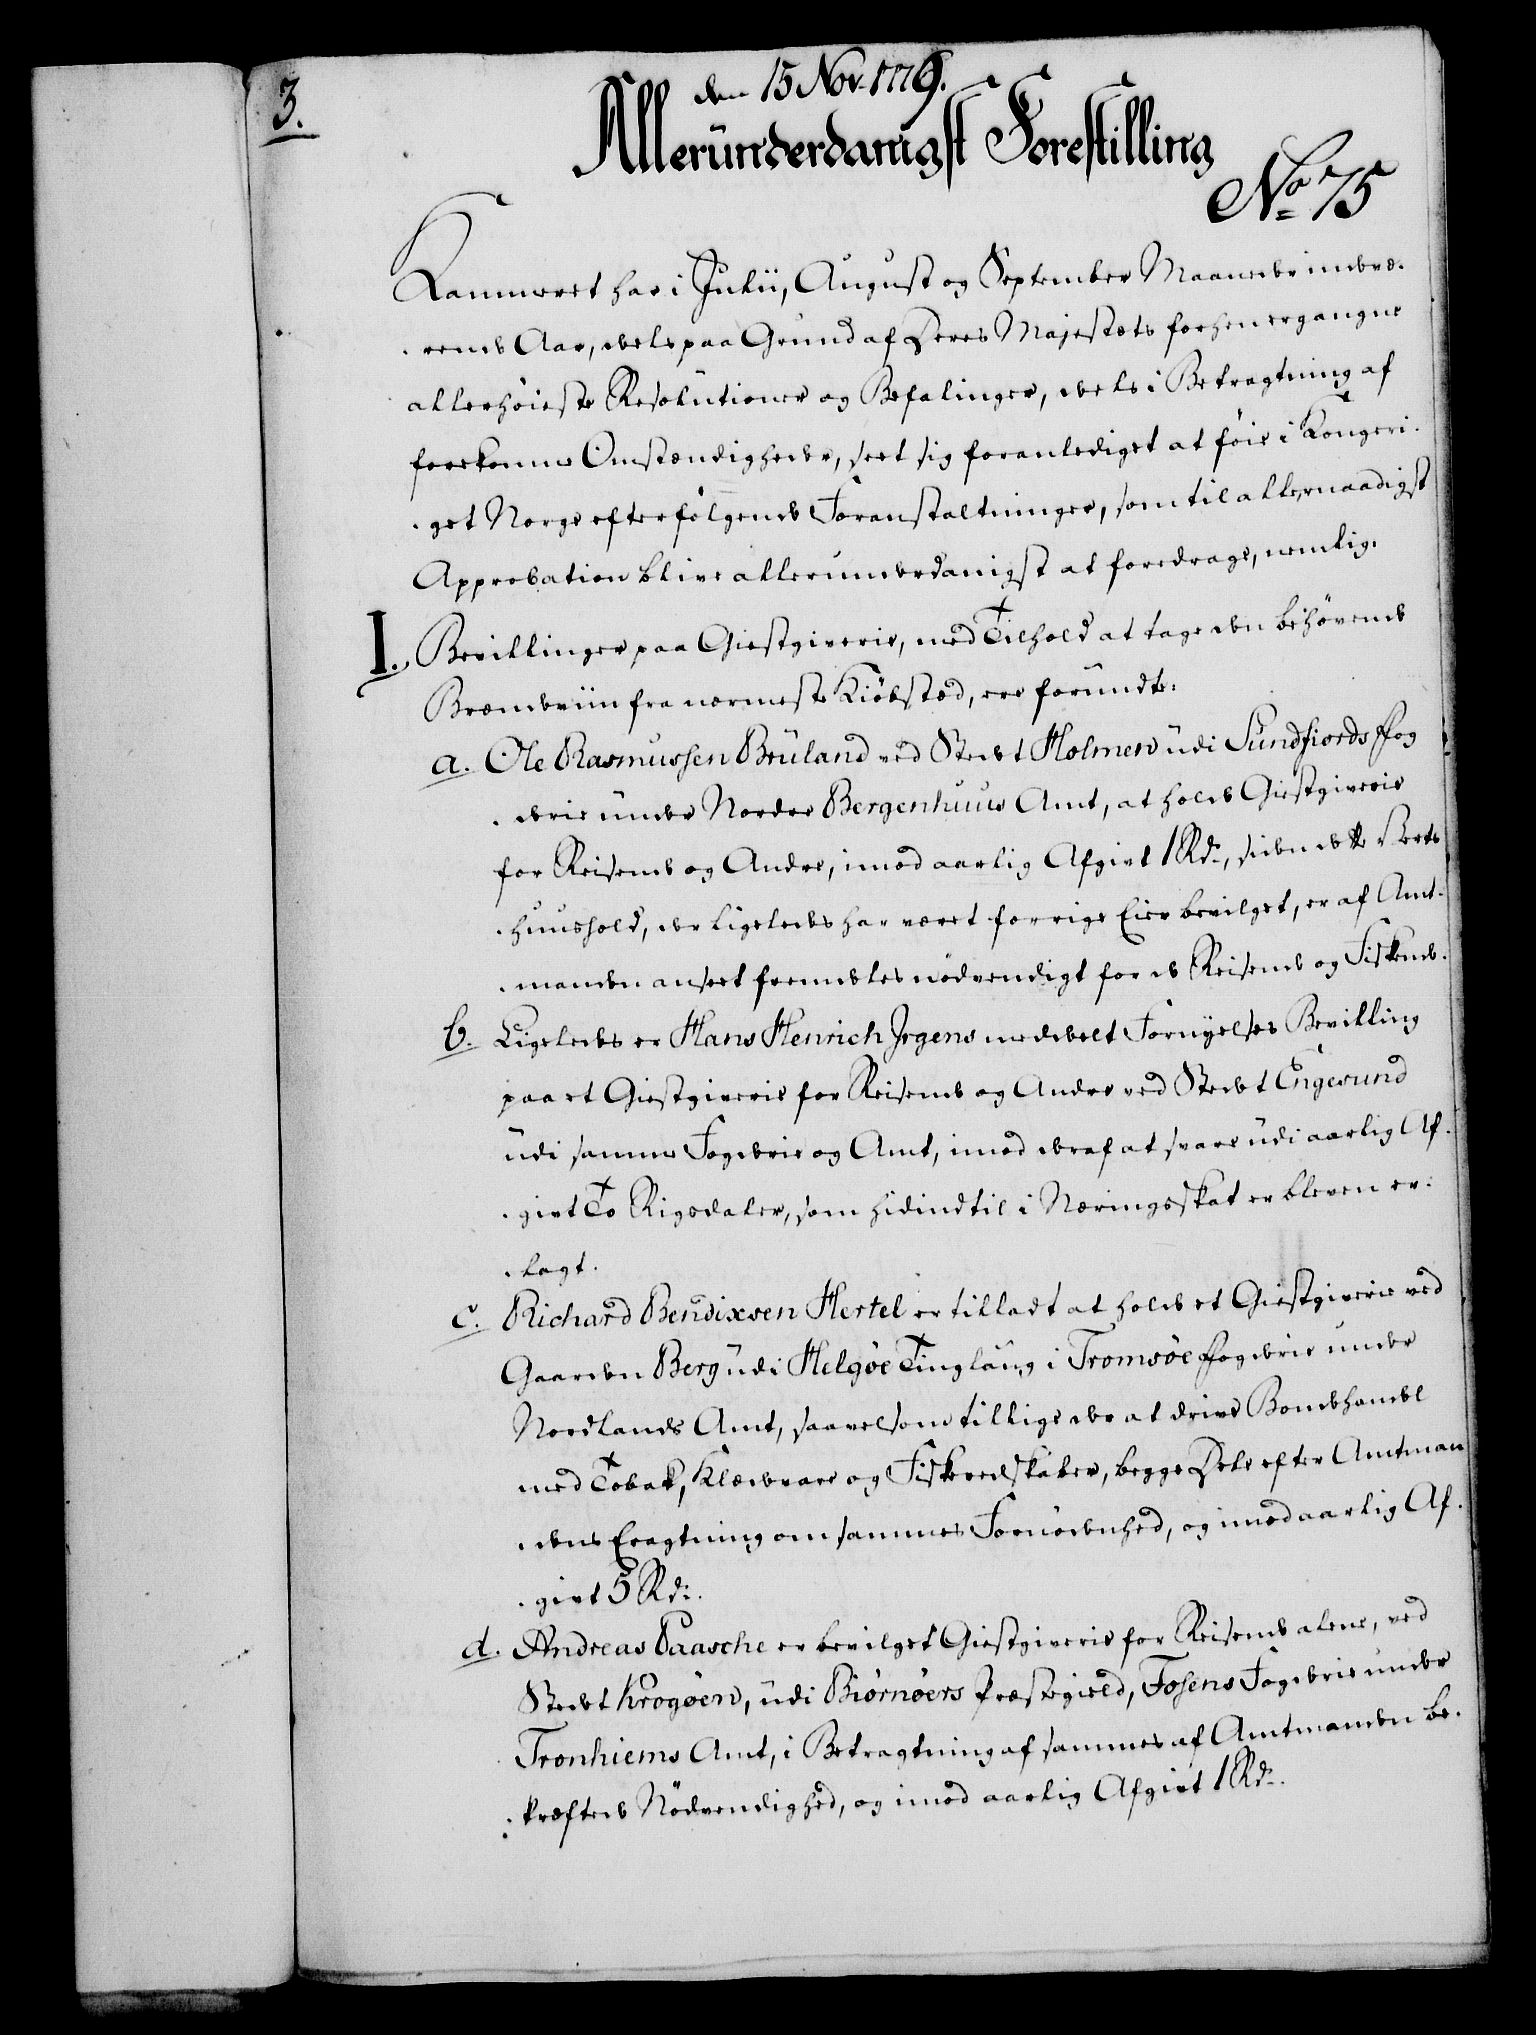 3.
den 15 Nov. 1779.
Alleründerdanigst Forestilling
No. 75
Kammeret har i Julii, August og September Maaneder indevæ-
-rende Aar, deels paa Grund af Deres Majestæts forhen ergangne
allerhöieste Resolutioner og Befalinger, deels i Betragtning af
forekomne Omstændigheder, seet sig foranlediget at föie i Kongeri-
-get Norge efterfölgende Foranstaltninger, som til allernaadigst
Approbation blive allerunderdanigst at foredrage, nemlig:
I. Bevillinger paa Giestgiverie, med Tilhold at tage den behövende
Brændeviin fra nærmeste Kiöbstæd, ere forundte:
a. Ole Rasmussen Brüland ved Stedet Holmen üdi Sundfiords Fog
-derie under Nordre Bergenhuus Amt, at holde Giestgiverie
for Reisende og Andre, imod aarlig Afgivt 1 Rd., siden dette Verts-
-huushold, der ligeledes har været forrige Eier bevilget, er af Amt-
-manden anseet fremdeles nödvendigt for de Reisende og Fiskende.
b. Ligeledes er Hans Henrich Irgens meddeelt Fornyelses Bevilling
paa et Giestgiverie for Reisende og Andre ved Stedet Engesund
üdi samme Fogderie og Amt, imod deraf at svare üdi aarlig Af-
-givt To Rigsdaler, som hidindtil i Næringsskat er bleven er-
-lagt.
c. Richard Bendixsen Hertel er tilladt at holde et Giestgiverie ved
Gaarden Berg üdi Helgöe Tinglaug i Tromsöe Fogderie under
Nordlands Amt, saavelsom tillige der at drive Bondehandel
med Tobak, Klædevare og Fiskeredskaber, begge Dele efter Amtman
-dens Eragtning om sammes Fornödenhed, og imod aarlig Af-
-givt 5 Rd:.
d. Andreas Paasche er bevilget Giestgiverie for Reisende alene, ved
Stedet Krogöen, üdi Biörnöers Præstegield, Fosens Fogderie under
Tronhiems Amt, i Betragtning af sammes af Amtmanden be-
-kræftede Nödvendighed, og imod aarlig Afgivt 1 Rd.